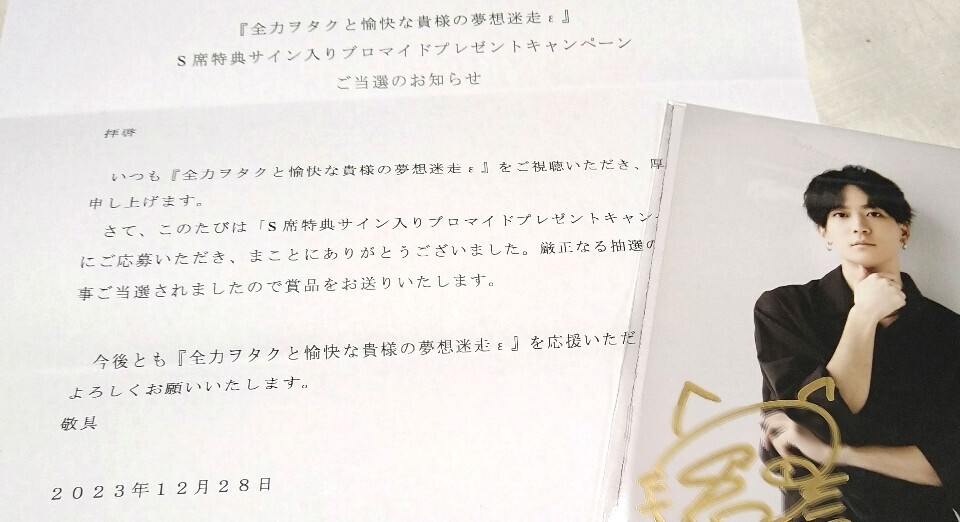 『全力ヲタクと愉快な貴様の夢想迷走ε』
S席特典サイン入りブロマイドプレゼントキャンペーン
ご当選のお知らせ
拝啓
いつも『全力ヲタクと愉快な貴様の夢想迷走ε』をご視聴いただき、厚
申し上げます。
さて、このたびは「S席特典サイン入りブロマイドプレゼントキャン
にご応募いただき、まことにありがとうございました。厳正なる抽選の
事ご当選されましたので賞品をお送りいたします。
今後とも『全力ヲタクと愉快な貴様の夢想迷走ε』を応援いただ
よろしくお願いいたします。
敬具
2023年12月28日